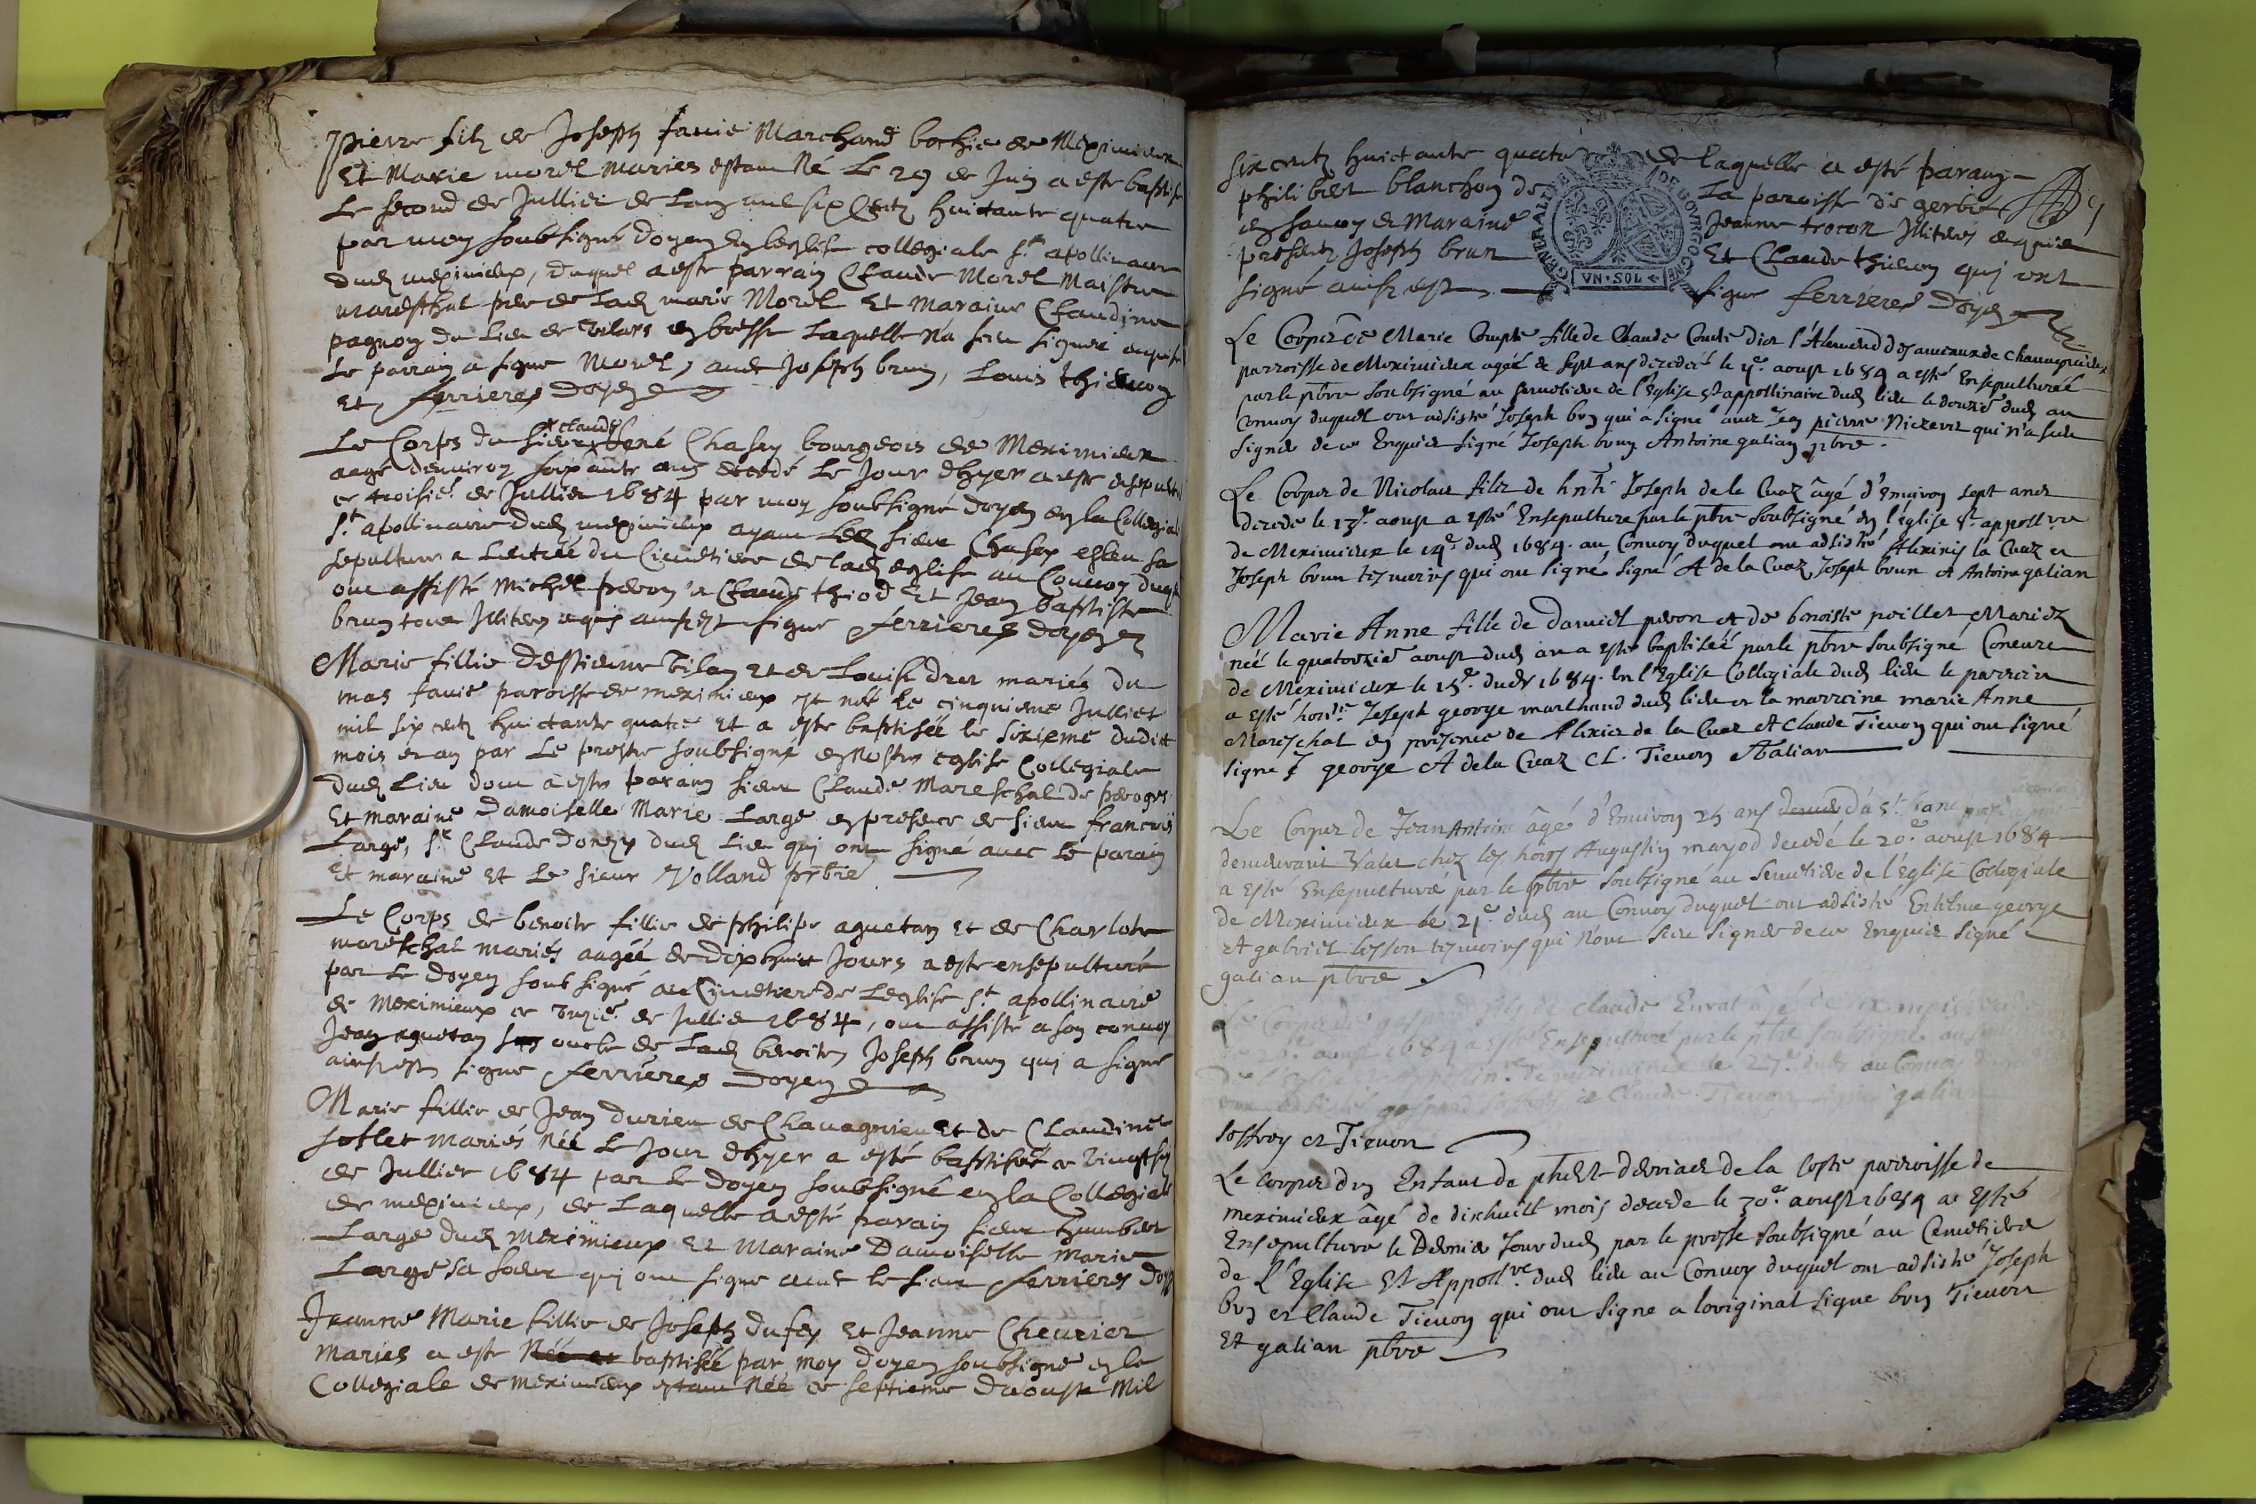 pierre filz de Joseph favie Marchand bochie de Meximieux
Et Marie morel maries estant Né Le 29 de Juin a este baptise
Le second de Jullier de Lan mil six Centz huictante quatre
par moy soubsigné doyen en leglise collegiale st apollinaire
dud meximieux, duquel a este parrain Claude Morel Maistre
mareschal pere de lad marie Morel Et Maraine Claudine
pagnon du Lieu de Vilars en bresse Laquelle na sceu signer enquise
Le parrain a signe Morel, avec Joseph brun, Louis thievon
Et ferrieres doyen
Le Corps du sieur claude René Chasey bourgeois de Meximieux
aage denviron soixante ans decedé Le Jour dhyer a este ensepulturé
ce troisie. de Jullier 1684 par moy soubsigné doyen en la Collegiale
st. apollinaire dud meximieux ayant Led sieur Chasey esleu sa
sepulture a Lentrée du Cimetiere de lad eglise au Convoy duquel
ont assisté Michel peron Claude thiod Et Jean baptiste
brun tous Illiteres enquis ainsi est signe ferrieres doyen
Marie fillie destienne Vilan et de Louise druz mariés du
mas favie paroisse de meximieux est née Le cinquieme Julliet
mil six centz huictante quatre Et a este baptisée le sixieme dudict
mois et an par Le prestre soubsigné en nostre eglise Collegiale
dud Lieu dont a este parain sieur Claude Mareschal de peroges
Et maraine damoiselle Marie Large en presence de sieur francois
Large, sr Claude donzy dud Lieu qui ont signé avec Le parain
Et maraine Et Le sieur Volland prbre
Le Corps de benoite fillie de philipe aguetan Et de Charlote
mareschal mariés aagée de dix huit Jours a este ensepulturé
par Le doyen soub signé au Cymetiere de Leglise st. apollinaire
de Meximieux ce unzie. de Jullier 1684, ont assisté a son convoy
Jean aguetan oncle de Lad benoite Joseph brun qui a signé
ainsi est signe ferrieres doyen
Marie fillie de Jean durieu de Chavagnieu Et de Claudine
sotlet mariés Née Le Jour dhyer a esté baptisée ce vingt six
de Jullier 1684 par Le doyen soubsigné en la Collegiale
de meximieux, de Laquelle a esté parain sieur humbert
Large dud meximieux Et Maraine Damoiselle Marie
Large sa soeur qui ont signe avec le sieur ferrieres doyen
Jeanne Marie fillie de Joseph dufey Et Jeanne Chevrier
maries a este Née et baptisée par moy doyen soubsigne en la
Collegiale de meximieux estant Née ce septieme daouste Mil
six centz huictante quatre de Laquelle a esté parain
philibert blanchon de La paroisse de gerbais
en savoy Et Maraine Jeanne trocon Illiteres enquis
presentz Joseph brun Et Claude thievon qui ont
signé ainsi est signe ferrieres doyen
GENERALITE DE BOVRGOGNE
VN·SOL
Le Corps de Marie Compte fille de Claude Comte dict l'Alemend des ameaux de Chavagnieux
parroisse de Meximieux agée de sept ans decedée le 11e. aoust 1684 a esté Ensepulturée
par le pbre soubsigné au semetiere de l'Eglise St appollinaire dud lieu le douzie dud au
Convoy duquel ont adsisté Joseph brun qui a signé avec Jean pierre Nicevre qui n'a sceu
signer de ce Enquis signé Joseph brun Antoine galian pbre.
Le Corps de Nicolas filz de hnte Joseph de la Cuaz âgé d'Environ sept ans
decede le 13e. aoust a esté Ensepulture par le pbre soubsigné en l'église St. appollre
de Meximieux le 14e. dud 1684. au Convoy duquel ont adsisté Alexis la Cuaz et
Joseph brun tesmoins qui ont signé, signé A de la Cuaz Joseph brun et Antoine galian
Marie Anne fille de Daniel peron et de benoiste poillet Mariez
née le quatorzie aoust dud an a esté baptisée par le pbre soubsigné Coneuré
de Meximieux le 15e. dud 1684. en l'Eglise Collegiale dud lieu le parrein
a esté honte. Joseph george marchand dud lieu et la marreine marie Anne
Mareschal en presence de Alexis de la Cuaz et Claude Tievon qui ont signé
signé J george A de la Cuaz CL. Tievon Galian
Le Corps de Jean Antoine âgé d'Environ 25 ans
demeurant Valet chez les hoirs Augustin mayod decedé le 20e. aoust 1684
a esté Ensepulturé par le pbre soubsigné au semetiere de l'église Collegiale
de Meximieux le 21e. dud au Convoy duquel ont adsisté Entelme george
et gabriel tesson tesmoins qui n'ont sceu signer de ce Enquis signé
galian pbre
Le Corps de Claude âgé de
aoust 1684 a esté Ensepulturé par le pbre soubsigné au
le 27e. dud au Convoy
ont adsisté gaspard et Claude Tievon galian
Joffrey et Tievon
Le Corps d'un Enfant de phelt derriaz de la Coste parroisse de
meximieux âgé de dixhuict mois decede le 30e. aoust 1684 a esté
Ensepulture le Dernier Jour dud par le prestre soubsigné au Cemetiere
de L'Eglise St Appollre. dud lieu au Convoy duquel ont adsisté Joseph
brun et Claude Tievon qui ont signe a loriginal signe brun Tievon
Et galian pbre